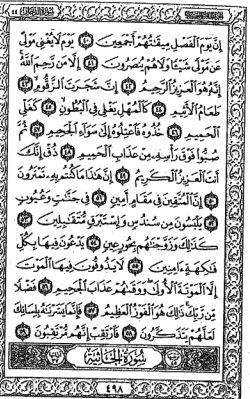 إِنَّ يَوْمَ ٱلْفَصْلِ مِيقَٰتُهُمْ أَجْمَعِينَ ٤٠ يَوْمَ لَا يُغْنِي مَوْلًى
عَن مَّوْلًى شَيْـًٔا وَلَا هُمْ يُنصَرُونَ ٤١ إِلَّا مَن رَّحِمَ ٱللَّهُ
إِنَّهُۥ هُوَ ٱلْعَزِيزُ ٱلرَّحِيمُ ٤٢ إِنَّ شَجَرَتَ ٱلزَّقُّومِ ٤٣
طَعَامُ ٱلْأَثِيمِ ٤٤ كَٱلْمُهْلِ يَغْلِي فِي ٱلْبُطُونِ ٤٥ كَغَلْيِ
ٱلْحَمِيمِ ٤٦ خُذُوهُ فَٱعْتِلُوهُ إِلَىٰ سَوَآءِ ٱلْجَحِيمِ ٤٧ ثُمَّ
صُبُّوا۟ فَوْقَ رَأْسِهِۦ مِنْ عَذَابِ ٱلْحَمِيمِ ٤٨ ذُقْ إِنَّكَ
أَنتَ ٱلْعَزِيزُ ٱلْكَرِيمُ ٤٩ إِنَّ هَٰذَا مَا كُنتُم بِهِۦ تَمْتَرُونَ
٥٠ إِنَّ ٱلْمُتَّقِينَ فِي مَقَامٍ أَمِينٍ ٥١ فِي جَنَّٰتٍ وَعُيُونٍ
٥٢ يَلْبَسُونَ مِن سُندُسٍ وَإِسْتَبْرَقٍ مُّتَقَٰبِلِينَ ٥٣
كَذَٰلِكَ وَزَوَّجْنَٰهُم بِحُورٍ عِينٍ ٥٤ يَدْعُونَ فِيهَا بِكُلِّ
فَٰكِهَةٍ ءَامِنِينَ ٥٥ لَا يَذُوقُونَ فِيهَا ٱلْمَوْتَ
إِلَّا ٱلْمَوْتَةَ ٱلْأُولَىٰ وَوَقَىٰهُمْ عَذَابَ ٱلْجَحِيمِ ٥٦ فَضْلًا
مِّن رَّبِّكَ ذَٰلِكَ هُوَ ٱلْفَوْزُ ٱلْعَظِيمُ ٥٧ فَإِنَّمَا يَسَّرْنَٰهُ بِلِسَانِكَ
لَعَلَّهُمْ يَتَذَكَّرُونَ ٥٨ فَٱرْتَقِبْ إِنَّهُم مُّرْتَقِبُونَ ٥٩
سُورَةُ الجَاثِيَةِ
٤٩٨